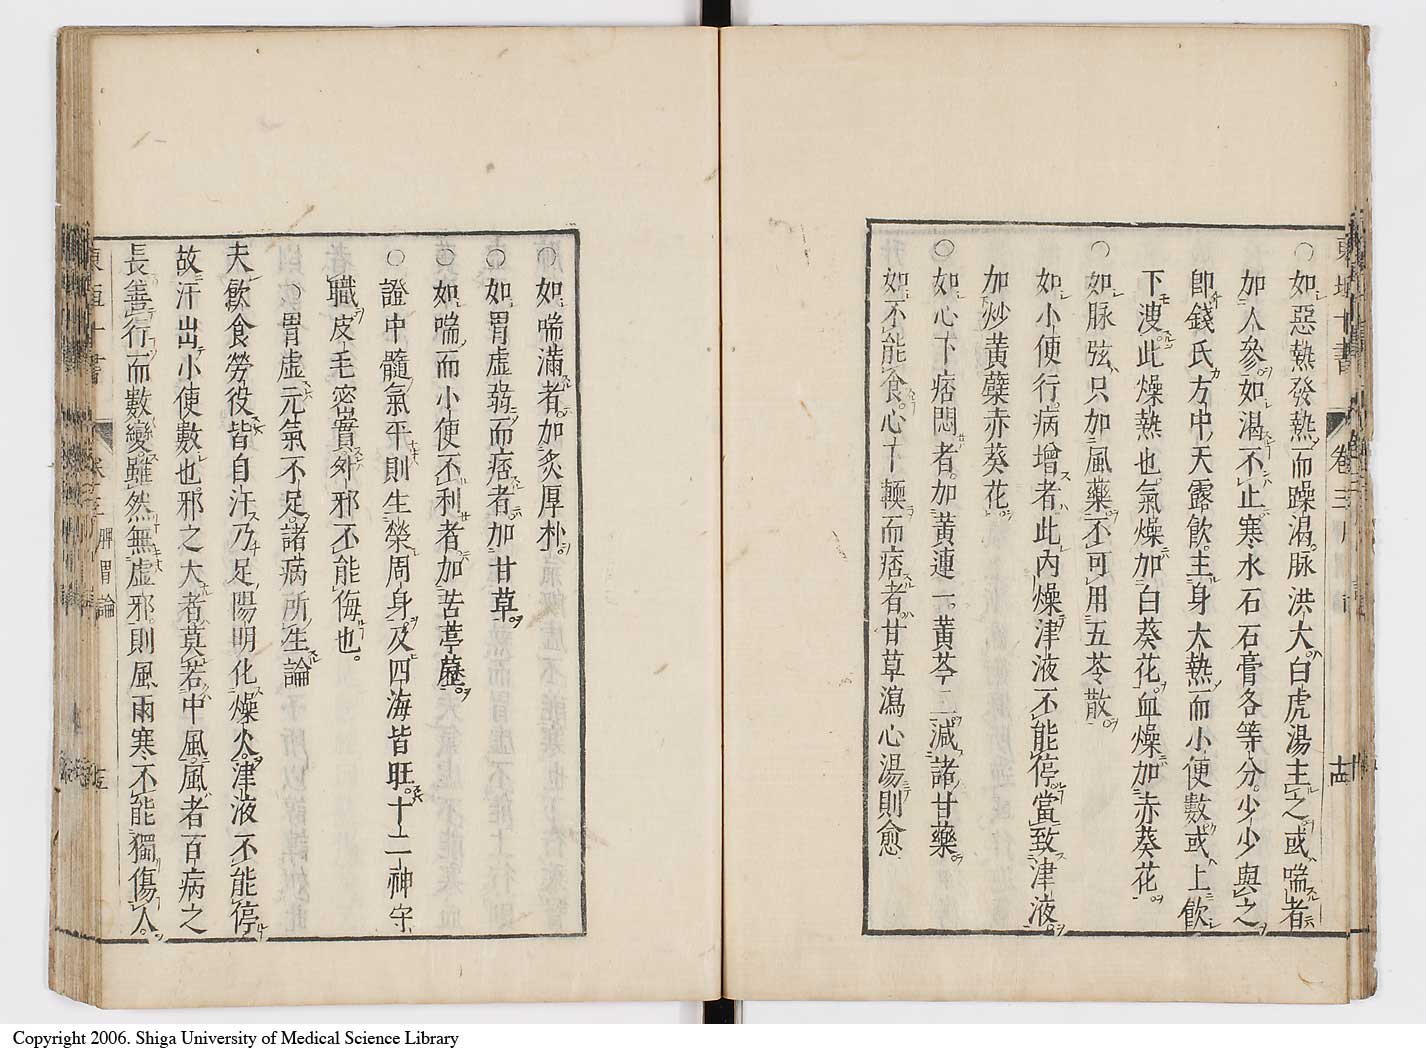 ○如惡熱發熱而躁渴脉洪大白虎湯主之或喘者
如人參如渴不止寒水石石膏各等分少少與之
卽錢氏方中天露飲主身大熱而小便數或上飲
下溲此燥熱也氣燥加白葵花血燥加赤葵花
○如脉弦只加風藥不可用五苓散
如小便行病增者此內燥津液不能停當致津液
加炒黃蘗赤葵花
○如心下痞悶者加黃連一黃芩二減諸甘藥
如不能食心下耎而痞者甘草瀉心湯則愈
卷三
○如喘滿者加炙厚朴
○如胃虛弱而痞者加甘草
○如喘而小便不利者加苦葶藶
○證中髓氣平則生榮周身及四海皆旺十二神守
職皮毛宻實外邪不能侮也
○胃虛元氣不足諸病所生論
夫飲食勞役皆自汗乃足陽明化燥火津液不能停
故汗出小使數也邪之大者莫若中風風者百病之
長善行而數變雖然無虛邪則風雨寒不能獨傷人
東垣十書
脾胃論
Copyright 2006. Shiga University of Medical Science Library